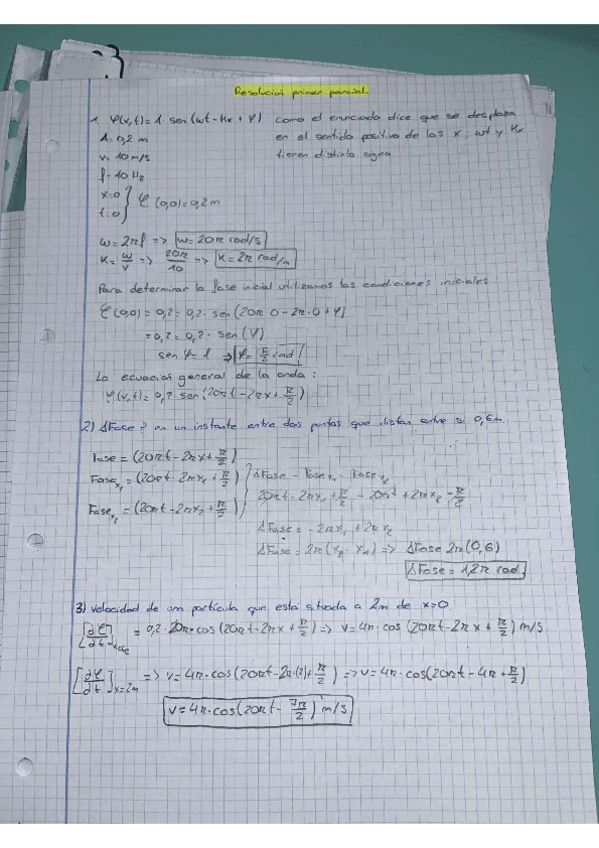 Resolución primer parcial.
1. φ(x,t)=A·sen(wt-Kx+φ) como el enunciado dice que se desplaza
A=0,2 m en el sentido positivo de las x; wt y Kx
v=10m/s tienen distinto signo
f=10Hz
x=0
t=0} φ(0,0)=0,2m
w=2πf => w=20π rad/s
K=w/v => 20π/10 => K=2π rad/m
Para determinar la fase inicial utilizamos las condiciones iniciales
φ(0,0)=0,2=0,2·sen(20π·0-2π·0+φ)
=0,2=0,2·sen(φ)
sen φ=1 => φ=π/2 rad
La ecuación general de la onda:
φ(x,t)=0,2 sen(20πt-2πx+π/2)
2) ΔFase? en un instante entre dos puntos que distan entre si 0,6m
Fase=(20πt-2πx+π/2)
Fase x₁=(20πt-2πx₁+π/2) ΔFase=Fase x₁-Fase x₂
Fase x₂=(20πt-2πx₂+π/2) 20πt-2πx₁+π/2-20πt+2πx₂-π/2
ΔFase=-2πx₁+2πx₂
ΔFase=2π(x₂-x₁)=> ΔFase 2π(0,6)
ΔFase=1,2π rad.
3) Velocidad de una partícula que está situada a 2m de x=0
[∂φ/∂t]x=cte = 0,2·20π·cos(20πt-2πx+π/2)=> v=4π·cos(20πt-2πx+π/2) m/s
[∂φ/∂t]x=2m => v=4π·cos(20πt-2π·(2)+π/2) => v=4π·cos(20πt-4π+π/2)
v=4π·cos(20πt-7π/2) m/s